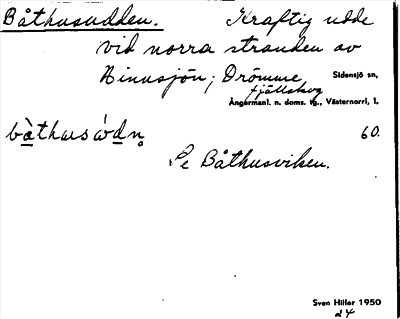 Båthusudden. Kraftig udde
vid norra stranden av
Hinnsjön; Drömme Sidensjö sn,
fjällskog
Ångermanl. n. doms. tg., Västernorrl. l.
båthusúdn̥ 60.
Se Båthusviken.
Sven Hiller 1950
24